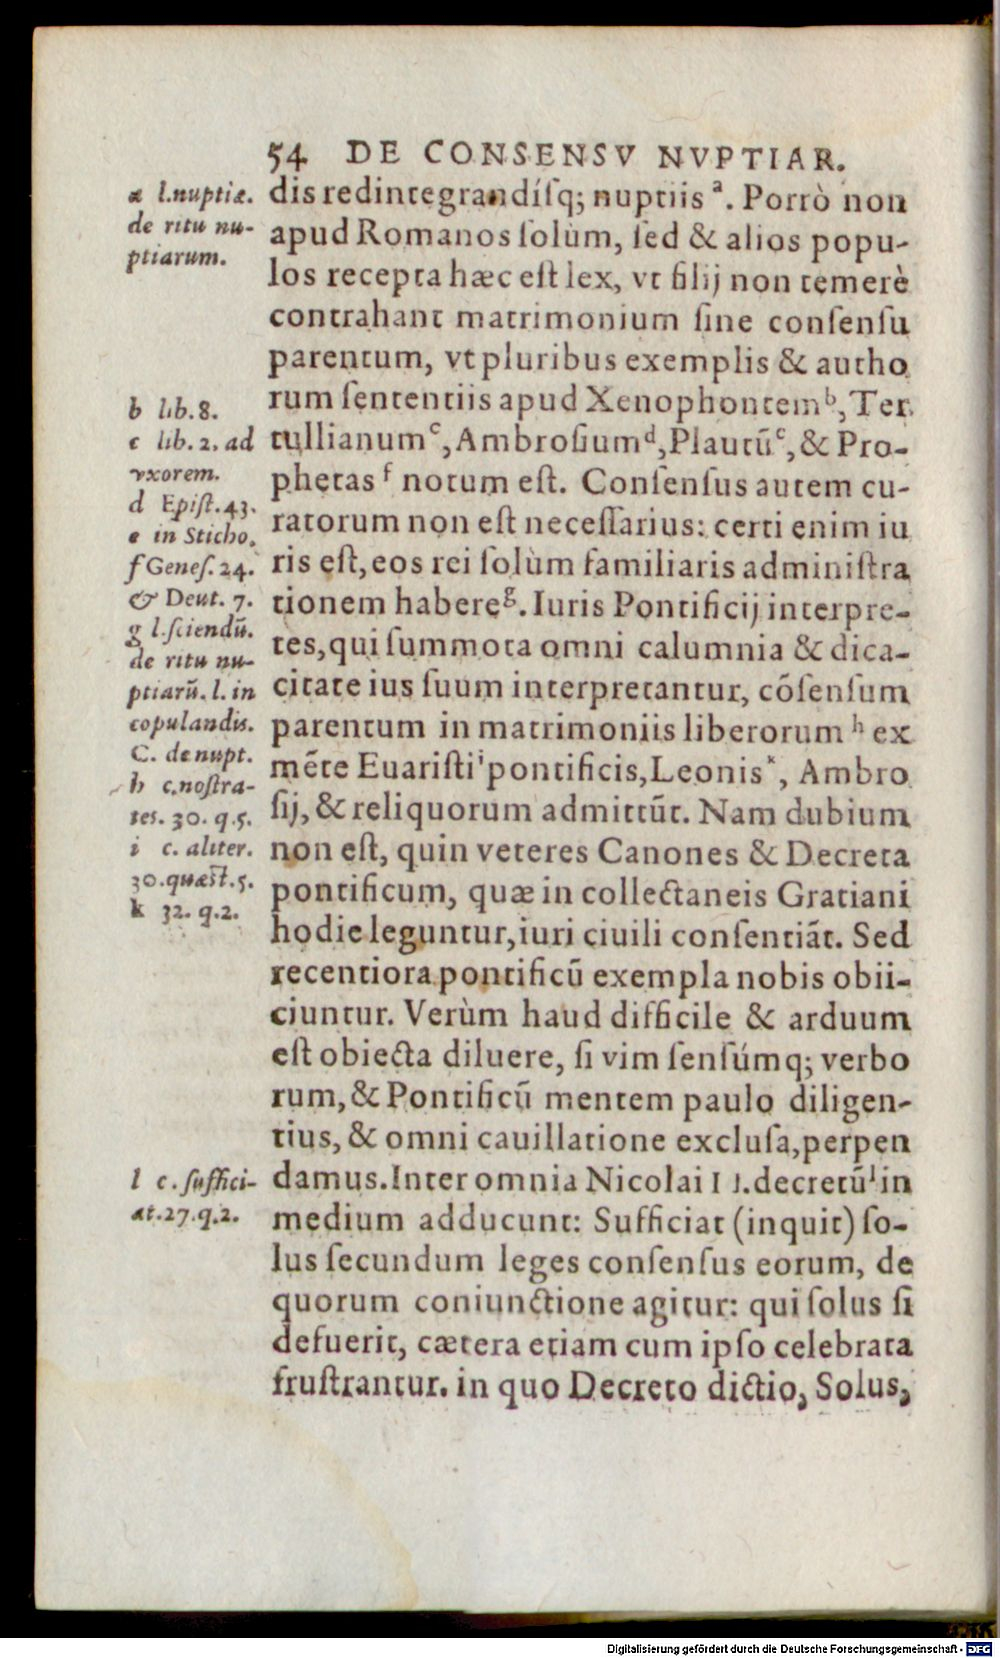 54 DE CONSENSV NVPTIAR.
disredintegrandíſq; nuptiis ᵃ. Porrò non
apud Romanos ſolùm, ſed & alios popu-
los recepta hæc eſt lex, vt filij non temerè
contrahant matrimonium ſine conſenſu
parentum, vt pluribus exemplis & autho
rum ſententiis apud Xenophontem ᵇ, Ter
tullianum ᶜ, Ambroſium ᵈ, Plautū ᵉ, & Pro-
phetas ᶠ notum eſt. Conſenſus autem cu-
ratorum non eſt neceſſarius: certi enim iu
ris eſt, eos rei ſolùm familiaris adminiſtra
tionem habere ᵍ. Iuris Pontificij interpre-
tes, qui ſummota omni calumnia & dica-
citate ius ſuum interpretantur, cōſenſum
parentum in matrimoniis liberorum ʰ ex
mēte Euariſti ⁱ pontificis, Leonis ᵏ, Ambro
ſij, & reliquorum admittūt. Nam dubium
non eſt, quin veteres Canones & Decreta
pontificum, quæ in collectaneis Gratiani
hodie leguntur, iuri ciuili conſentiāt. Sed
recentiora pontificū exempla nobis obii-
ciuntur. Verùm haud difficile & arduum
eſt obiecta diluere, ſi vim ſenſúmq; verbo
rum, & Pontificū mentem paulo diligen-
tius, & omni cauillatione excluſa, perpen
damus. Inter omnia Nicolai II. decretū ˡ in
medium adducunt: Sufficiat (inquit) ſo-
lus ſecundum leges conſenſus eorum, de
quorum coniunctione agitur: qui ſolus ſi
defuerit, cætera etiam cum ipſo celebrata
fruſtrantur. in quo Decreto dictio, Solus,
a l. nuptiæ.
de ritu nu-
ptiarum.
b lib. 8.
c lib. 2. ad
vxorem.
d Epiſt. 43.
e in Sticho.
f Geneſ. 24.
& Deut. 7.
g l. ſciendū.
de ritu nu-
ptiarū. l. in
copulandis.
C. de nupt.
h c. noſtra-
tes. 30. q. 5.
i c. aliter.
30. quæſt. 5.
k 32. q. 2.
l c. ſuffici-
at. 27. q. 2.
Digitalisierung gefördert durch die Deutsche Forschungsgemeinschaft - DFG